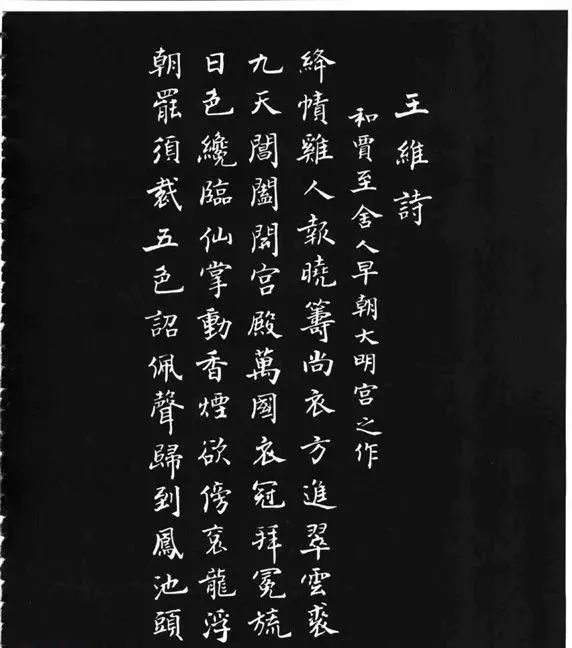 王維詩
和賈至舍人早朝大明宮之作
絳幘雞人報曉籌尚衣方進翠雲裘
九天閶闔開宮殿萬國衣冠拜冕旒
日色纔臨仙掌動香煙欲傍袞龍浮
朝罷須裁五色詔佩聲歸到鳳池頭